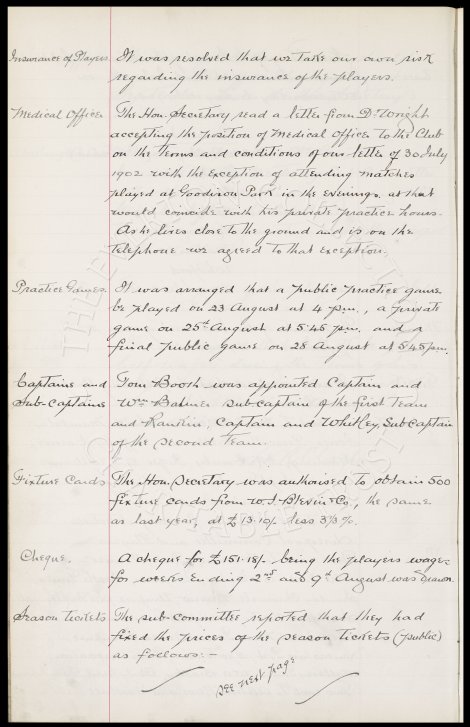 Insurance of Players. It was resolved that we take our own risk
regarding the insurance of the players.
Medical Officer The Hon. Secretary read a letter from Dr. Wright
accepting the position of Medical Officer to the Club
on the terms and conditions of our letter of 30 July
1902 with the exception of attending matches
played at Goodison Park in the evenings, as that
would coincide with his private practice hours.
As he lives close to the ground and is on the
telephone we agreed to that exception.
Practice Games. It was arranged that a public practice game
be played on 23 August at 4 p.m., a private
game on 25th August at 5.45 p.m. and a
final public game on 28 August at 5.45 p.m.
Captains and Tom Booth was appointed Captain and
Sub-Captains Wm Balmer sub-captain of the first team
and Rankin, Captain and Whitley, Sub Captain
of the second team.
Fixture Cards The Hon. Secretary was authorised to obtain 500
fixture cards from & Co., the same
as last year, at £13.10/- less 3¾%.
Cheque. A cheque for £151.18/- being the players wages
for weeks ending 2nd and 9th August was drawn
Season Tickets The sub-committee reported that they had
fixed the prices of the season tickets (public)
as follows:-
see next page